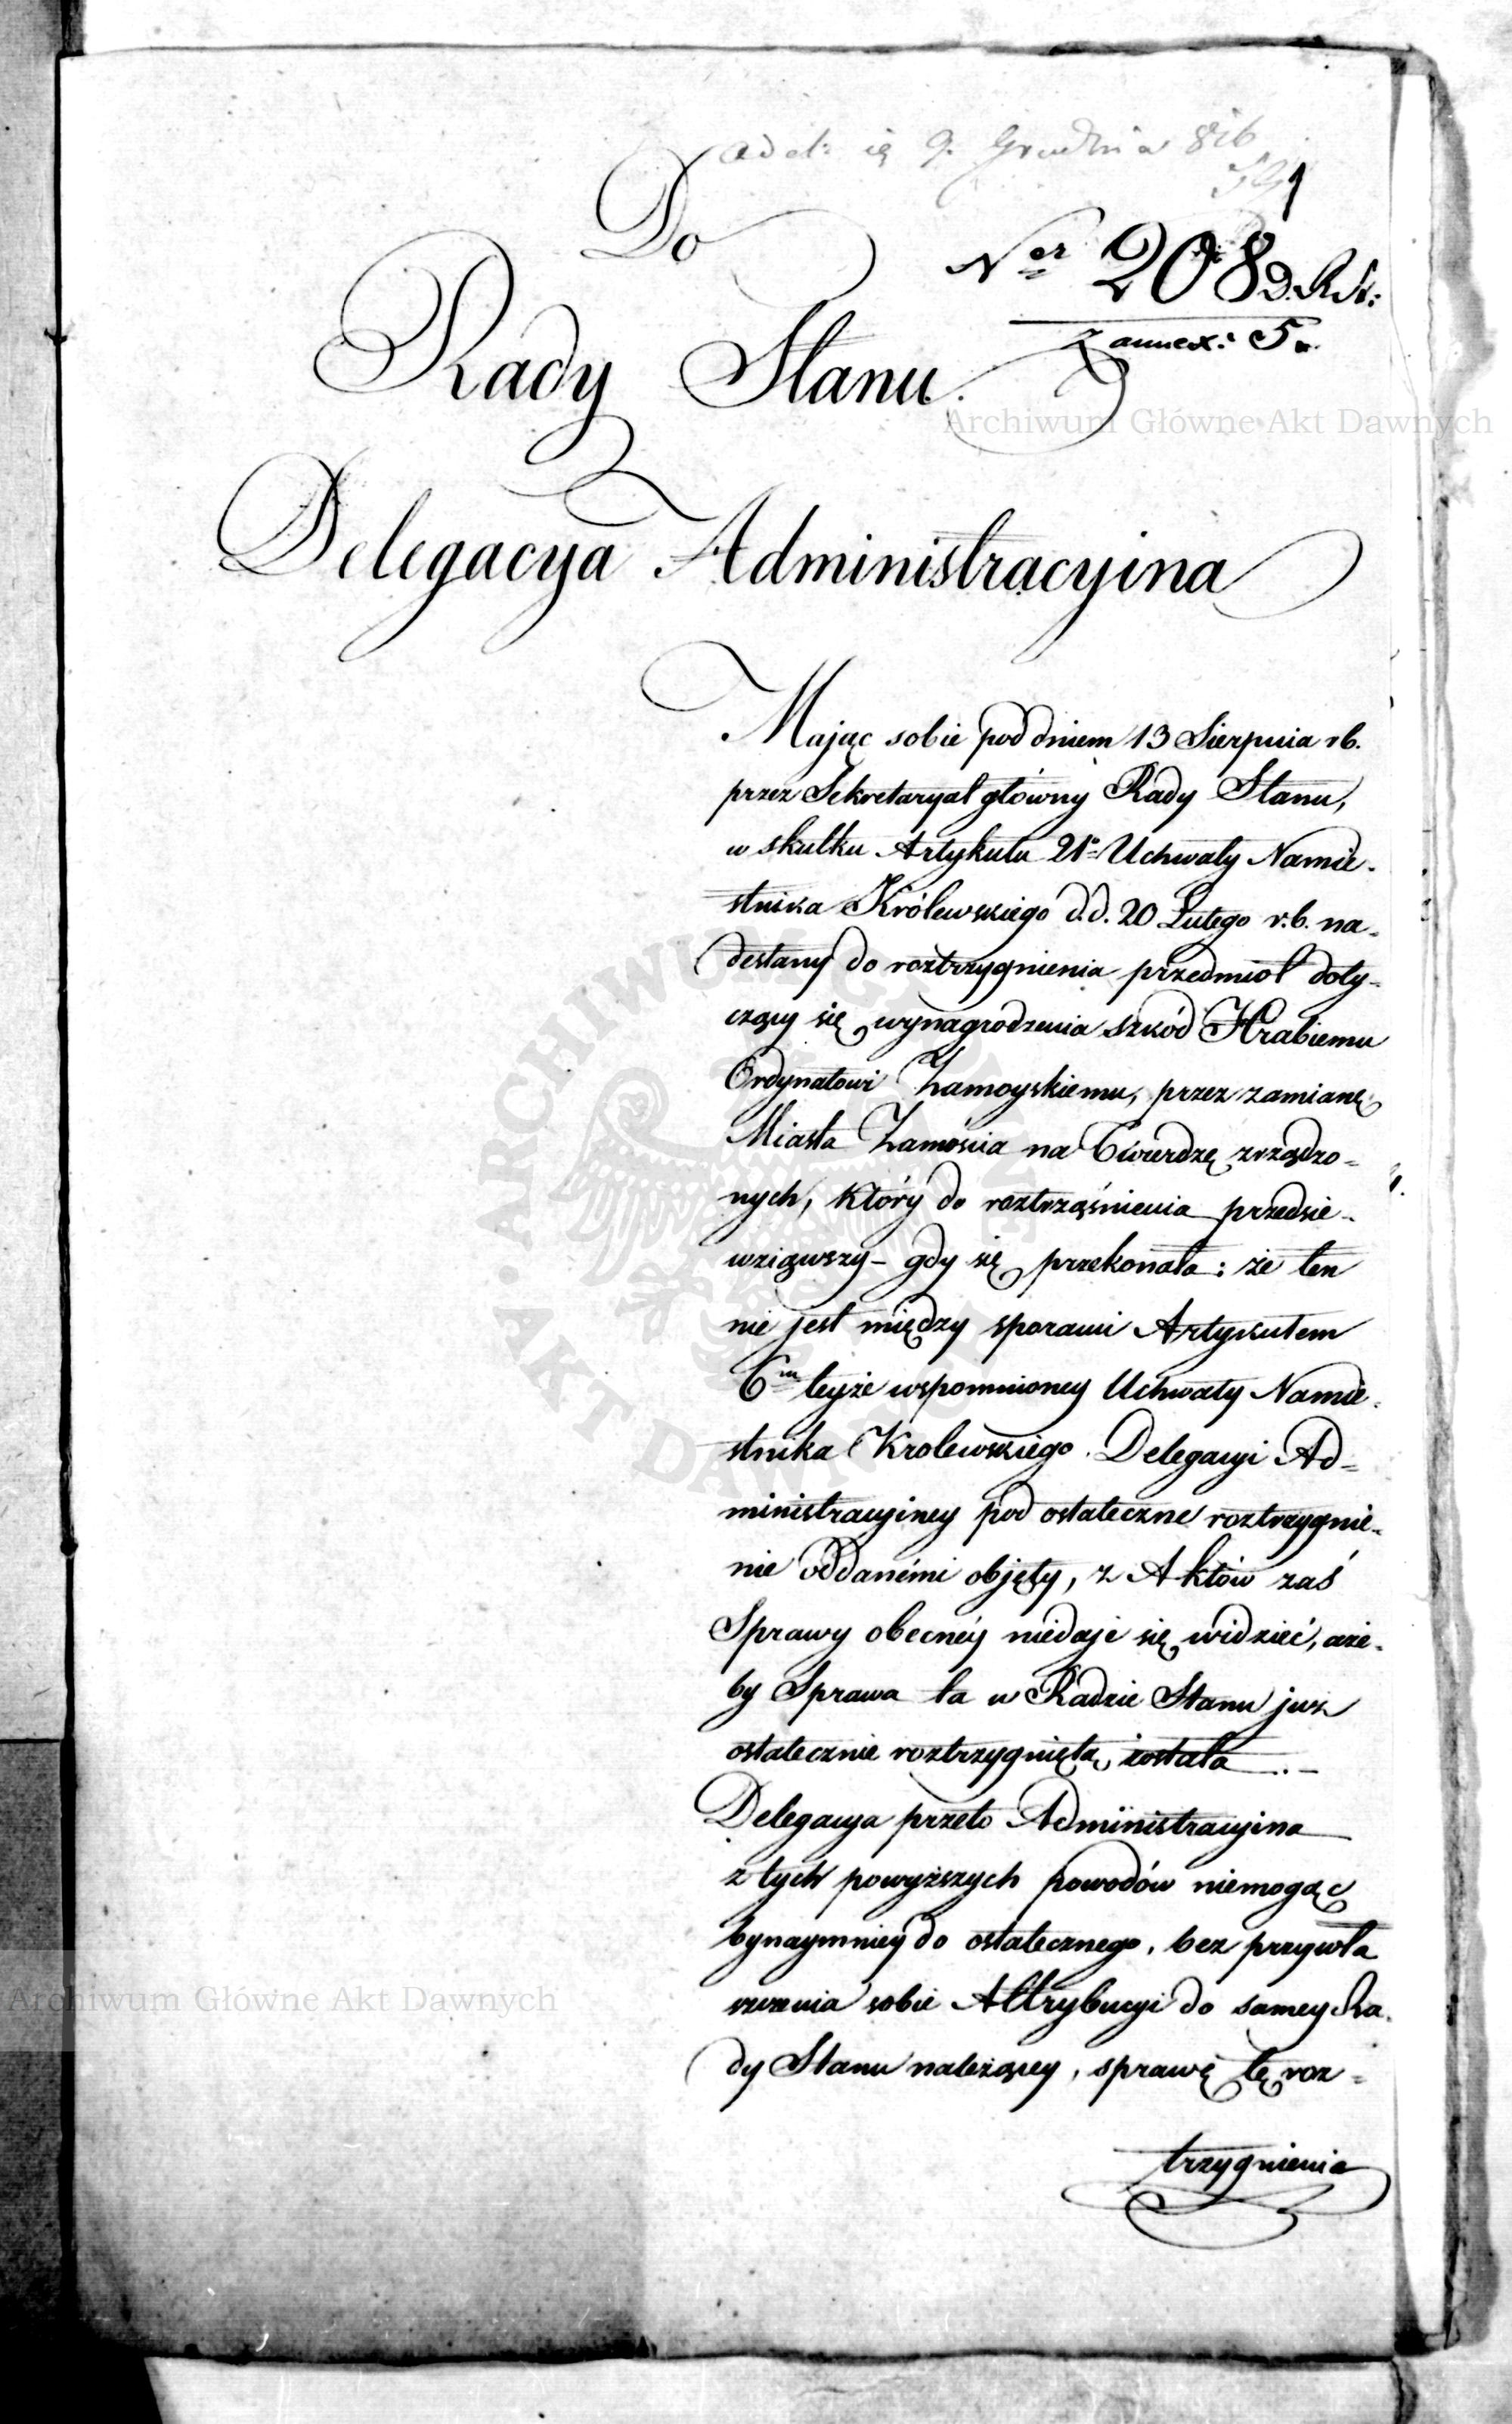 9. Grudnia 816
Do
Ner 208 D.R.St:
z annex: 5.
Rady Stanu.
Archiwum Główne Akt Dawnych
Delegacya Administracyina
Mając sobie pod dniem 13 Sierpnia rb.
przez Sekretaryat główny Rady Stanu,
w skutku Artykułu 21º Uchwały Namie-
stnika Królewskiego d.d. 20 Lutego r.b. na-
desłany do roztrzygnienia przedmiot doty-
czący się wynagrodzenia szkód Hrabiemu
Ordynatowi Zamoyskiemu, przez zamianę
Miasta Zamościa na Twierdzę zrządzo-
nych, który do roztrząśnienia przedsie-
wziąwszy – gdy się przekonała: że ten
nie jest między sporami Artykułem
6m teyże wspomnioney Uchwały Namie-
stnika Krolewskiego Delegacyi Ad-
ministracyiney pod ostateczne roztrzygnie-
nie oddanémi objęty, z Aktów zaś
Sprawy obecnéy niedaje się widzieć, aże-
by Sprawa ta w Radzie Stanu już
ostatecznie roztrzygniętą została. –
Delegacya przeto Administracyina
z tych powyższych powodów niemogąc
bynaymniey do ostatecznego, bez przywła
szczenia sobie Attrybucyi do samey Ra-
dy Stanu należącey, sprawę tę roz-
trzygnienia
Archiwum Główne Akt Dawnych
ARCHIWUM GŁÓWNE AKT DAWNYCH